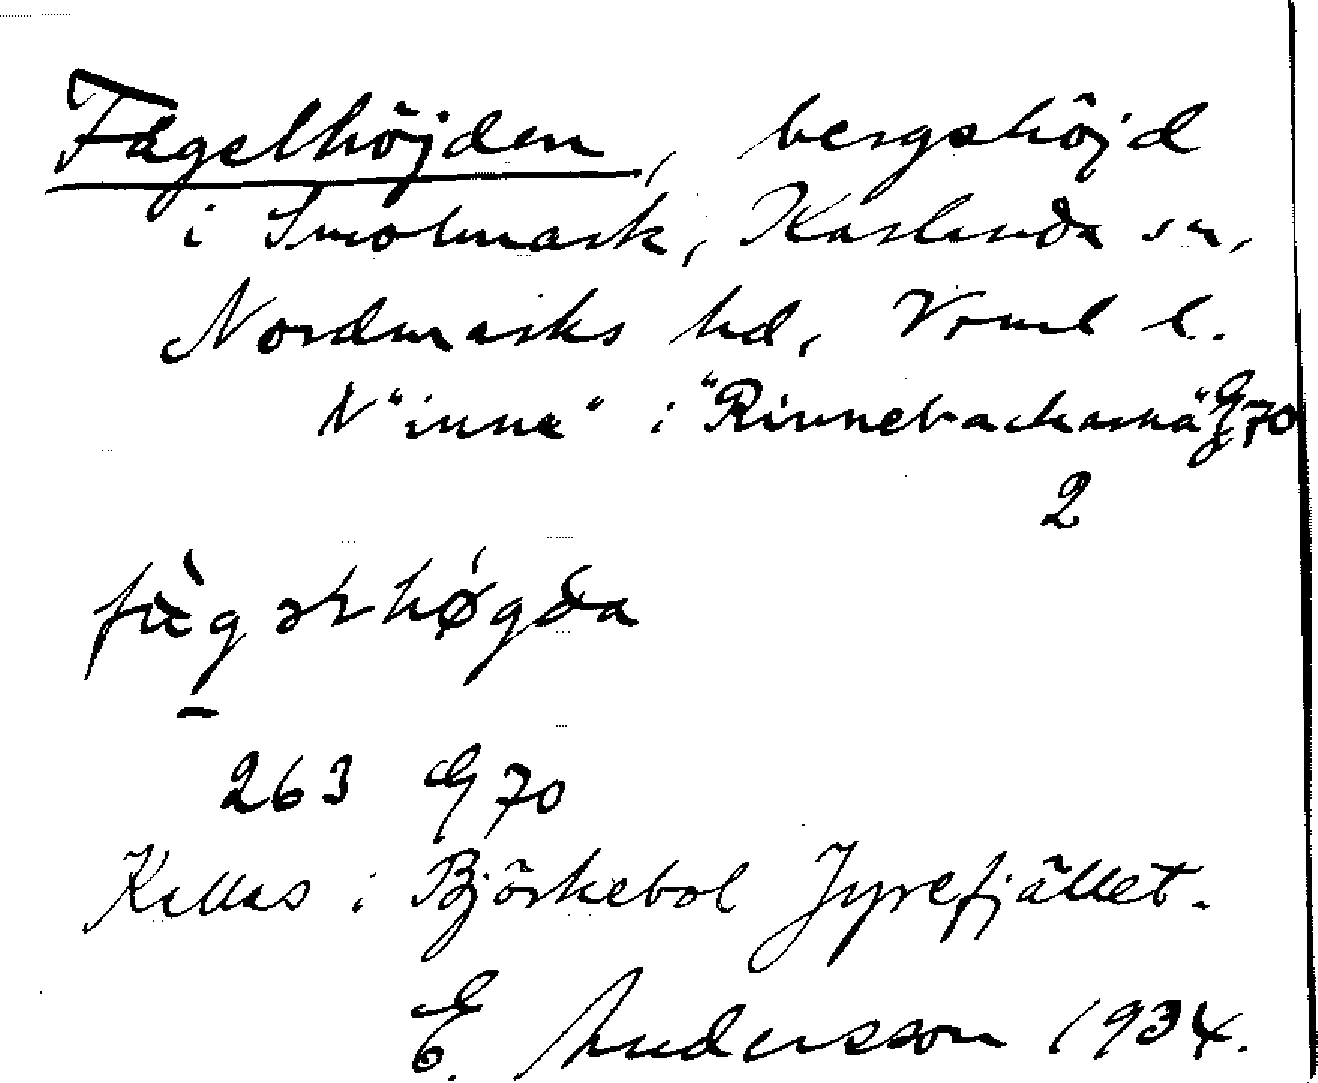 Fågelhöjden, bergshöjd
i Smolmark, Karlanda sn,
Nordmarks hd, Vrml l.
N "inna" i "Rinnebackarna" G70
2
263 G70
Kallas i Björkebol Jyrefjället.
E. Andersson 1934.